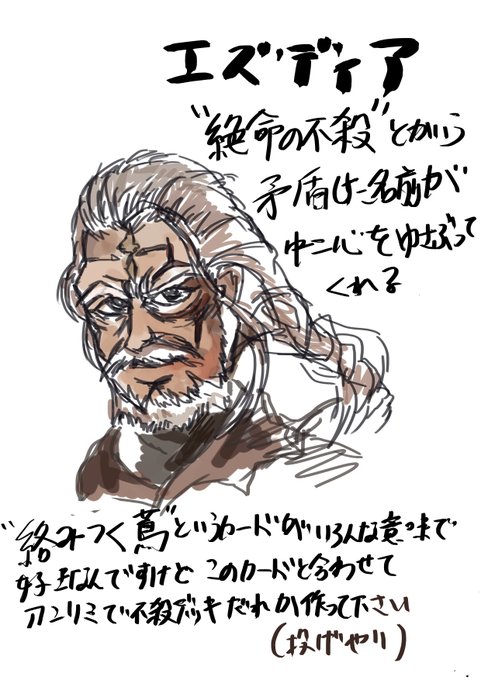 エズディア
"絶命の不殺"とかいう
矛盾した名前が
中二心をゆさぶって
くれる
"絡みつく蔦"というカードがいろんな意味で
好きなんですけど このカードと合わせて
アンリミで不殺デッキだれか作って下さい
(投げやり)